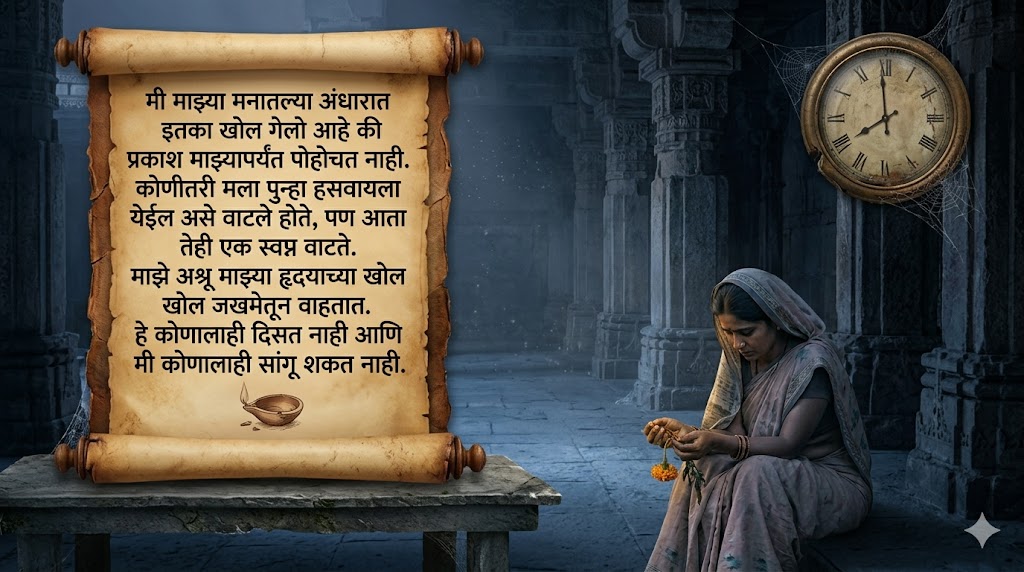 मी माझ्या मनातल्या अंधारात
इतका खोल गेलो आहे की
प्रकाश माझ्यापर्यंत पोहोचत नाही.
कोणीतरी मला पुन्हा हसवायला
येईल असे वाटले होते, पण आता
तेही एक स्वप्न वाटते.
माझे अश्रू माझ्या हृदयाच्या खोल
खोल जखमेतून वाहतात.
हे कोणालाही दिसत नाही आणि
मी कोणालाही सांगू शकत नाही.